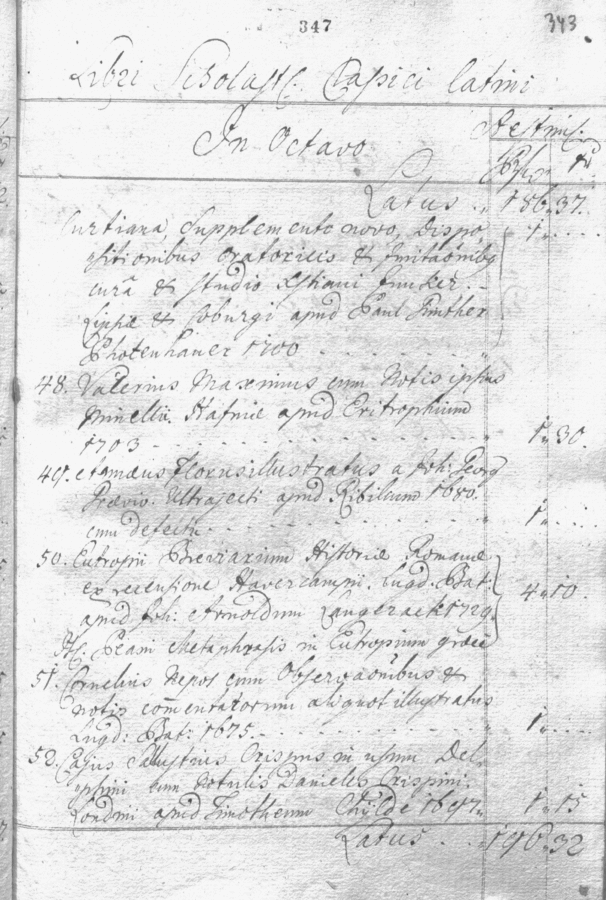 347
343
Libri Scholast: Classici Latini
In Octavo
Aestimat.
Latus .. 186. 37.
Curtiana, Supplemento novo, Dispo,
sitionibus Oratoriis & Imitaõnibq 1 . . . .
curâ & studio Xstiani Juncker.
Lipsiæ & Coburgi apud Paul Günther
Photenhauer 1700
48. Valerius Maximus cum Notis ipsius
Minellii. Hafniæ apud Eritrophium
1703 1. 30.
49. Annæus Florus illustratus a Joh: Georg
Grævio. Ultrajecti apud Ribbium 1680.
cum defectu 1 . . . .
50. Eutropii Breviarium Historiæ Romanæ
ex recensione Havercampii. Lugd. Bat:
apud Joh: Arnoldum Langerack 1729. 4. 10.
It. Peani Metaphrasis in Eutropium græcè
51. Cornelius Nepos cum Observaõnibus &
notis commentatorum aliquot illustratus
Lugd: Bat: 1675. 1 . . . .
52. Cajus Sallustius Crispus in usum Del-
phini cum Notulis Danielis Crispini.
Londini apud Timotheum Chylde 1697. 1. 15
Latus . . 196. 32